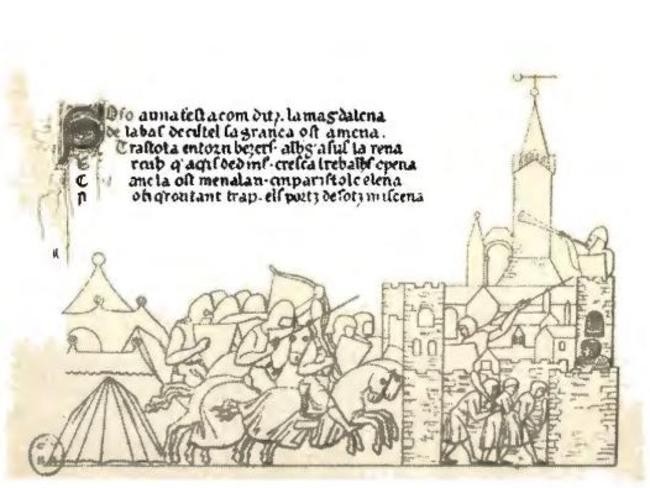 fo auna festa com ditz. la magdalena
labas de cistel sa granda ost amena.
Trastota entorn bezers. albg a sus la rena
q acels dedins. cresca trebalhs epena
anc la ost menalau. cui paris tolc elena
tant trap. els portz desotz miscena